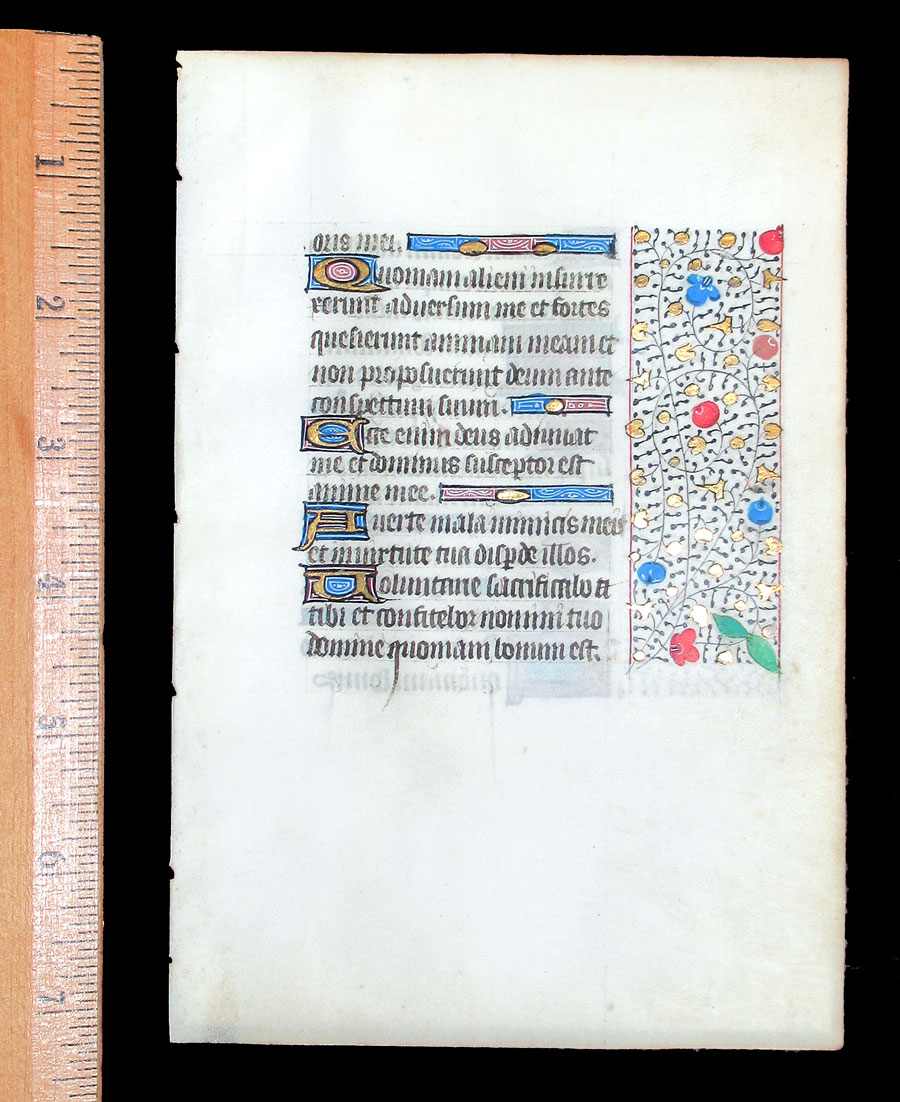 oris mei.
Quoniam alieni insurre
xerunt adversum me et fortes
quesierunt animam meam et
non proposuerunt deum ante
conspectum suum.
Ecce enim deus adiuvat
me et dominus susceptor est
anime mee.
Averte mala inimicis meis
et in virtute tua disperde illos.
Voluntarie sacrificabo
tibi et confitebor nomini tuo
domine quoniam bonum est.
1
2
3
4
5
6
7